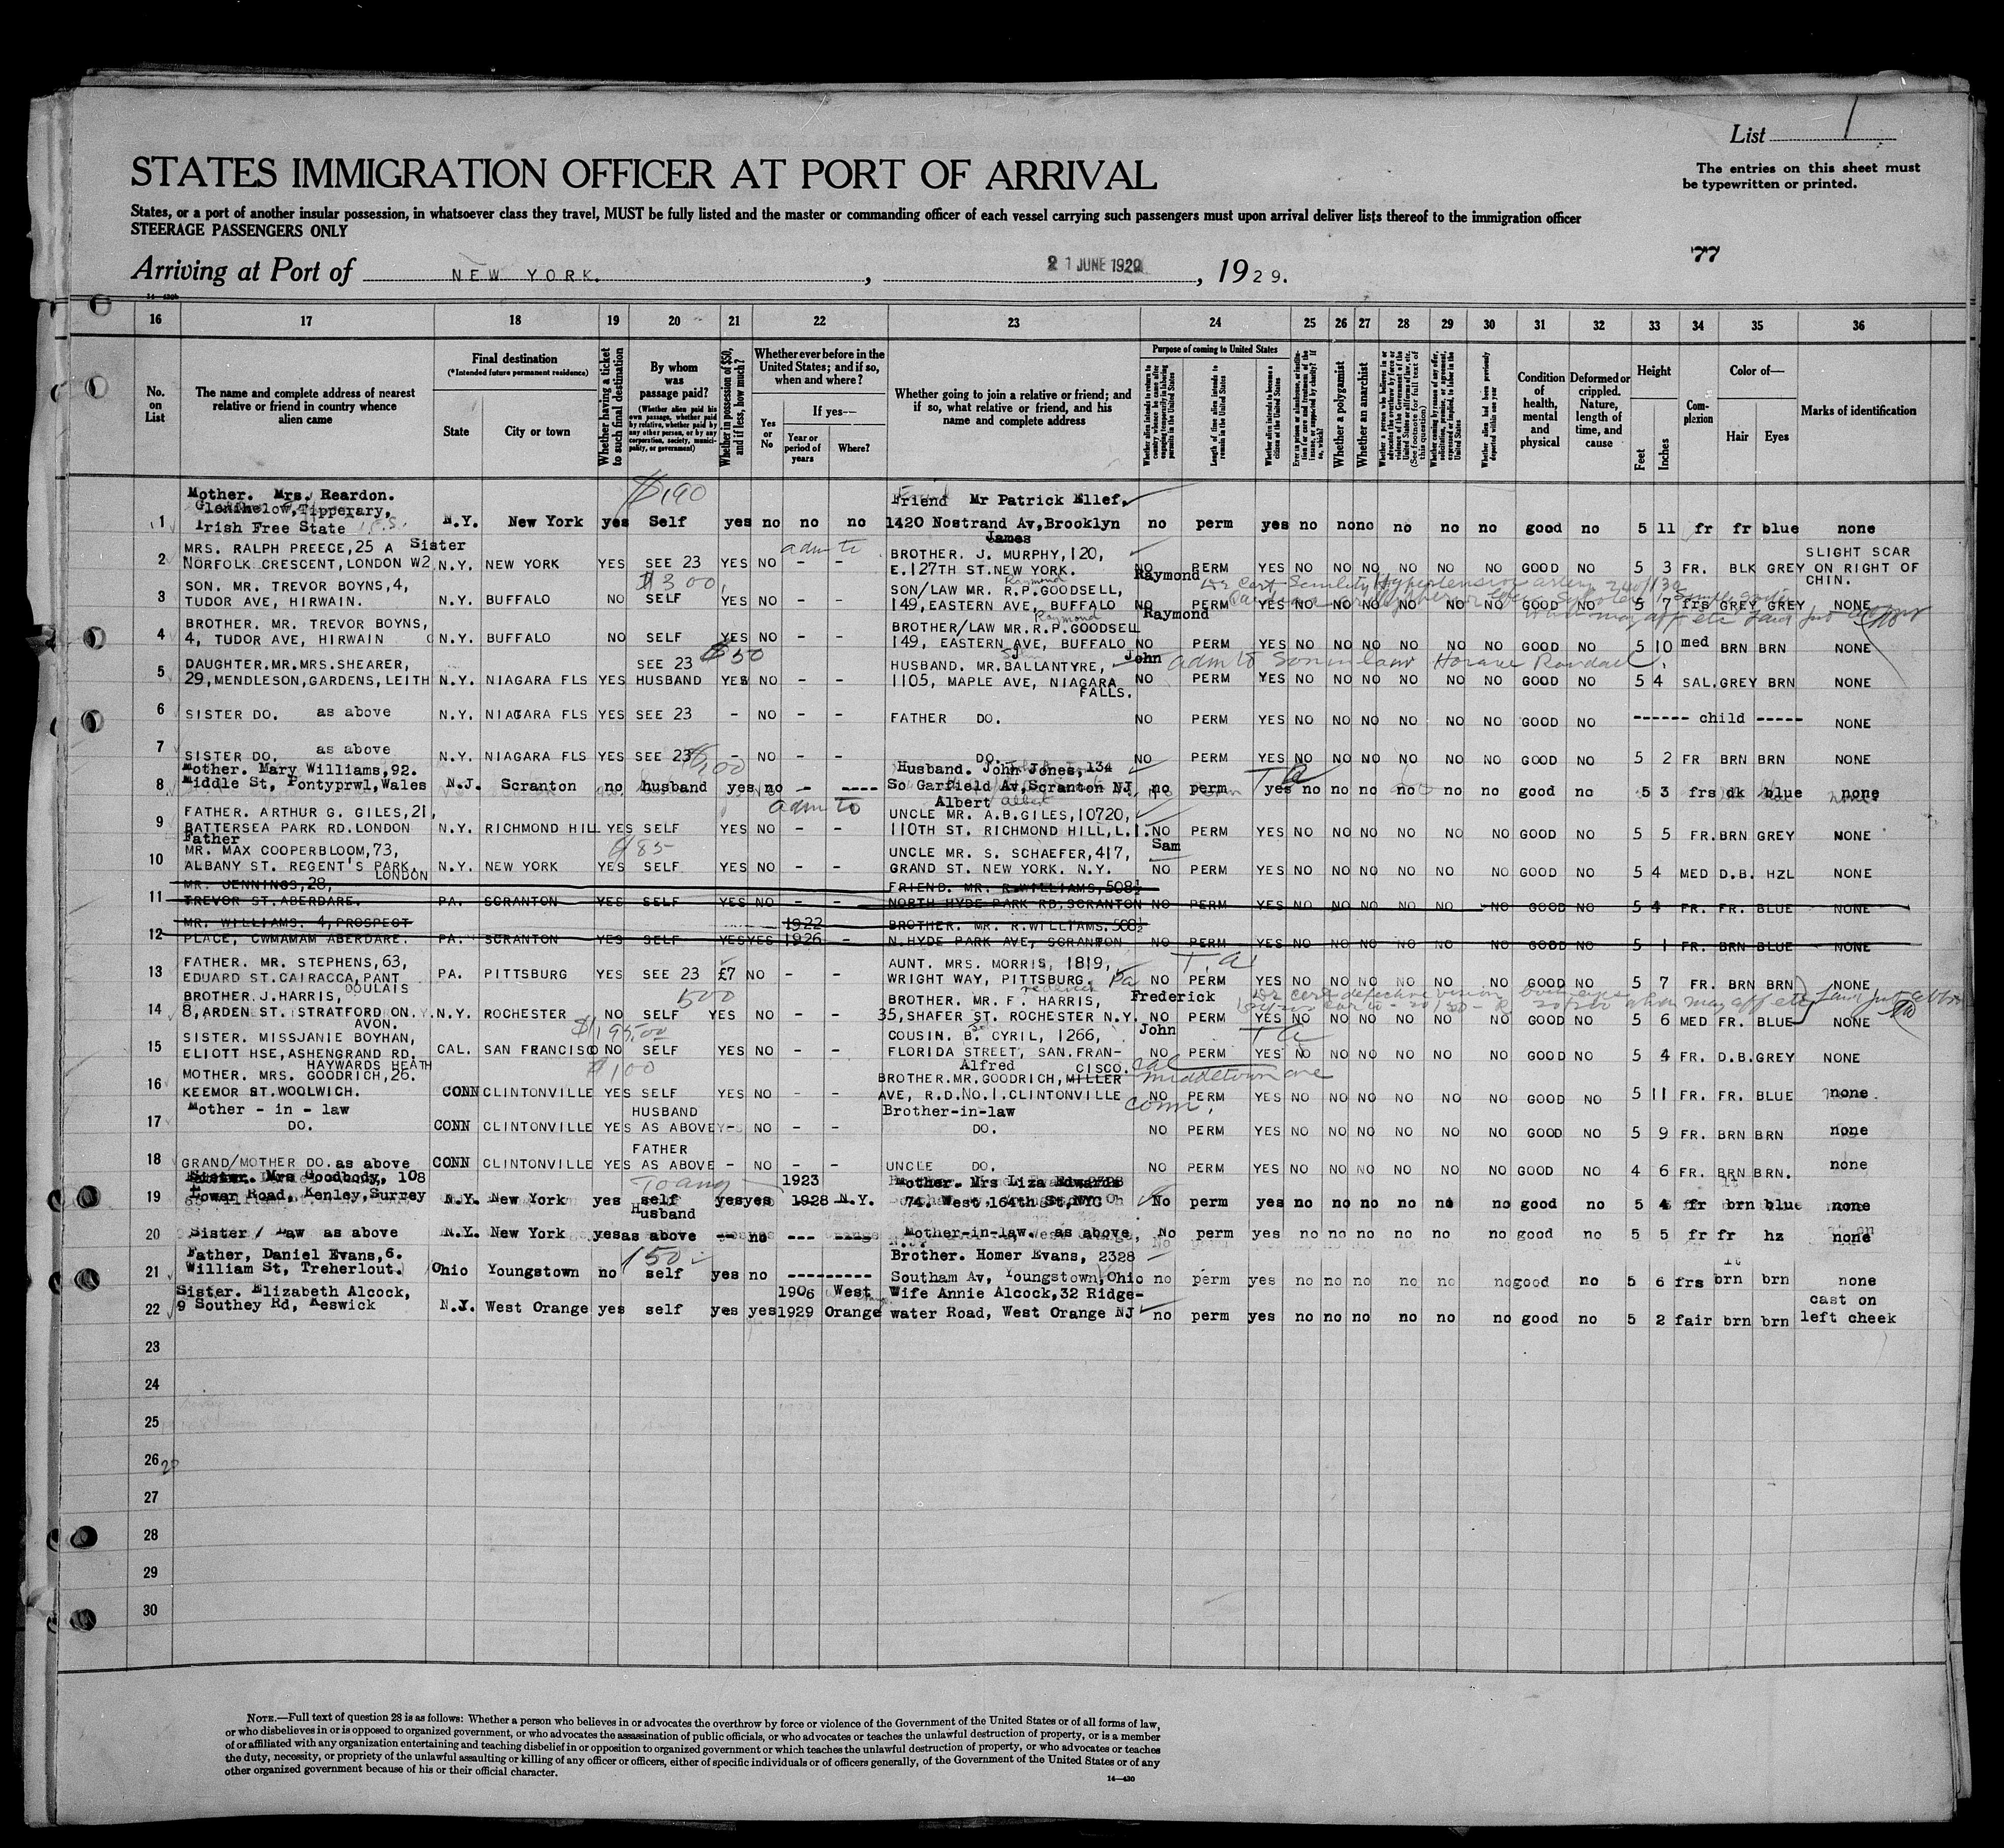 List 1
The entries on this sheet must
be typewritten or printed.
STATES IMMIGRATION OFFICER AT PORT OF ARRIVAL
States, or a port of another insular possession, in whatsoever class they travel, MUST be fully listed and the master or commanding officer of each vessel carrying such passengers must upon arrival deliver lists thereof to the immigration officer
STEERAGE PASSENGERS ONLY
77
Arriving at Port of NEW YORK. , 21 JUNE 1929 , 1929.
16 17 18 19 20 21 22 23 24 25 26 27 28 29 30 31 32 33 34 35 36
No. on List
The name and complete address of nearest relative or friend in country whence alien came
Final destination
(*Intended future permanent residence)
State
City or town
Whether having a ticket to such final destination
By whom was passage paid?
(Whether alien paid his own passage, whether paid by relative, whether paid by any other person, or by any corporation, society, municipality, or government)
Whether in possession of $50, and if less, how much?
Whether ever before in the United States; and if so, when and where?
Yes or No
If yes—
Year or period of years
Where?
Whether going to join a relative or friend; and if so, what relative or friend, and his name and complete address
Purpose of coming to United States
Length of time alien intends to remain in the United States
Whether alien intends to become a citizen of the United States
Whether a polygamist
Whether an anarchist
Condition of health, mental and physical
Deformed or crippled. Nature, length of time, and cause
Height
Feet
Inches
Complexion
Color of—
Hair
Eyes
Marks of identification
$190
Mother. Mrs. Reardon. Friend Mr Patrick Ellef.
Tipperary,
1 Irish Free State N.Y. New York yes Self yes no no no 1420 Nostrand Av,Brooklyn no perm yes no no no no no no good no 5 11 fr fr blue none
MRS. RALPH PREECE,25 A Sister adm to BROTHER. J. MURPHY,120, James SLIGHT SCAR
2 NORFOLK CRESCENT,LONDON W2 N.Y. NEW YORK YES SEE 23 YES NO - - E.127TH ST.NEW YORK. NO PERM YES NO NO NO NO NO NO GOOD NO 5 3 FR. BLK GREY ON RIGHT OF
CHIN.
SON. MR. TREVOR BOYNS,4, $300, SON/LAW MR. R.P.GOODSELL, Raymond
3 TUDOR AVE, HIRWAIN. N.Y. BUFFALO NO SELF YES NO - - 149,EASTERN AVE, BUFFALO NO PERM YES NO NO NO NO NO NO GOOD NO 5 7 frs GREY GREY NONE
BROTHER. MR. TREVOR BOYNS, BROTHER/LAW MR.R.P.GOODSELL Raymond
4 4, TUDOR AVE, HIRWAIN N.Y. BUFFALO NO SELF YES NO - - 149, EASTERN AVE, BUFFALO NO PERM YES NO NO NO NO NO NO GOOD NO 5 10 med BRN BRN NONE
DAUGHTER.MR.MRS.SHEARER, SEE 23 $50 HUSBAND. MR.BALLANTYRE, John adm to Son in law Horace Randall
5 29,MENDLESON,GARDENS,LEITH N.Y. NIAGARA FLS YES HUSBAND YES NO - - 1105, MAPLE AVE, NIAGARA NO PERM YES NO NO NO NO NO NO GOOD NO 5 4 SAL. GREY BRN NONE
FALLS.
6 SISTER DO. as above N.Y. NIAGARA FLS YES SEE 23 - NO - - FATHER DO. NO PERM YES NO NO NO NO NO NO GOOD NO ------ child ----- NONE
7 SISTER DO. as above N.Y. NIAGARA FLS YES SEE 23 - NO - - DO. NO PERM YES NO NO NO NO NO NO GOOD NO 5 2 FR BRN BRN NONE
Mother. Mary Williams,92. Husband. John Jones,134
8 Middle St, Pontyprwl,Wales N.J. Scranton no husband yes no - ---- So Garfield Av,Scranton NJ no perm yes no no no no no no good no 5 3 frs dk blue none
FATHER. ARTHUR G. GILES,21, adm to UNCLE MR. A.B.GILES,10720, Albert
9 BATTERSEA PARK RD.LONDON N.Y. RICHMOND HILL YES SELF YES NO - - 110TH ST. RICHMOND HILL,L.I. NO PERM YES NO NO NO NO NO NO GOOD NO 5 5 FR. BRN GREY NONE
Father
MR. MAX COOPERBLOOM,73, $85 UNCLE MR. S. SCHAEFER,417, Sam
10 ALBANY ST. REGENT'S PARK. N.Y. NEW YORK YES SELF YES NO - - GRAND ST. NEW YORK. N.Y. NO PERM YES NO NO NO NO NO NO GOOD NO 5 4 MED D.B. HZL NONE
LONDON
MR. JENNINGS,28, FRIEND. MR. R.WILLIAMS,508½
11 TREVOR ST.ABERDARE. PA. SCRANTON YES SELF YES NO - - NORTH HYDE PARK RD,SCRANTON NO PERM YES NO NO NO NO NO NO GOOD NO 5 4 FR. FR. BLUE NONE
MR. WILLIAMS. 4,PROSPECT 1922 BROTHER. MR. R.WILLIAMS,508½
12 PLACE, CWMAMAM ABERDARE. PA. SCRANTON YES SELF YES YES 1926 - N.HYDE PARK AVE, SCRANTON NO PERM YES NO NO NO NO NO NO GOOD NO 5 1 FR. BRN BLUE NONE
FATHER. MR. STEPHENS,63, AUNT. MRS. MORRIS, 1819,
13 EDUARD ST.CAIRACCA,PANT PA. PITTSBURG YES SEE 23 £7 NO - - WRIGHT WAY, PITTSBURG. Pa NO PERM YES NO NO NO NO NO NO GOOD NO 5 7 FR. BRN BRN NONE
DOULAIS
BROTHER.J.HARRIS, 500 BROTHER. MR. F. HARRIS, Frederick
14 8,ARDEN ST. STRATFORD ON. N.Y. ROCHESTER NO SELF YES NO - - 35,SHAFER ST. ROCHESTER N.Y. NO PERM YES NO NO NO NO NO NO GOOD NO 5 6 MED FR. BLUE NONE
AVON.
SISTER. MISSJANIE BOYHAN, COUSIN. B. CYRIL, 1266, John
15 ELIOTT HSE,ASHENGRAND RD. CAL. SAN FRANCISCO NO SELF YES NO - - FLORIDA STREET, SAN.FRAN- NO PERM YES NO NO NO NO NO NO GOOD NO 5 4 FR. D.B. GREY NONE
HAYWARDS HEATH $100 CISCO. Cal
MOTHER. MRS. GOODRICH,26. BROTHER.MR.GOODRICH,MILLER Alfred Middletown ave
16 KEEMOR ST.WOOLWICH. CONN CLINTONVILLE YES SELF YES NO - - AVE, R.D.NO.1.CLINTONVILLE Conn. NO PERM YES NO NO NO NO NO NO GOOD NO 5 11 FR. FR. BLUE none
Mother - in - law HUSBAND Brother-in-law
17 DO. CONN CLINTONVILLE YES AS ABOVE - NO - - DO. NO PERM YES NO NO NO NO NO NO GOOD NO 5 9 FR. BRN BRN none
FATHER
18 GRAND/MOTHER DO. as above CONN CLINTONVILLE YES AS ABOVE - NO - - UNCLE DO. NO PERM YES NO NO NO NO NO NO GOOD NO 4 6 FR. BRN BRN. none
Sister. Mrs Goodbody, 108 1923 Mother. Mrs Liza Edwards
19 Lower Road, Kenley,Surrey N.Y. New York yes self yes yes 1928 N.Y. 74. West 164th St,NYC No perm yes no no no no no no good no 5 4 fr brn blue none
Husband
20 Sister / Law as above N.Y. New York yes as above -- no --- ---- Mother-in-law. as above, No perm yes no no no no no no good no 5 5 fr fr hz none
Father, Daniel Evans,6. 150 Brother. Homer Evans, 2328
21 William St, Treherlout. Ohio Youngstown no self yes no --------- Southam Av, Youngstown,Ohio no perm yes no no no no no no good no 5 6 frs brn brn none
Sister. Elizabeth Alcock, 1906 West Wife Annie Alcock,32 Ridge- cast on
22 9 Southey Rd, Keswick N.J. West Orange yes self yes yes 1929 Orange water Road, West Orange NJ no perm yes no no no no no no good no 5 2 fair brn brn left cheek
23
24
25
26
27
28
29
30
NOTE.—Full text of question 28 is as follows: Whether a person who believes in or advocates the overthrow by force or violence of the Government of the United States or of all forms of law,
or who disbelieves in or is opposed to organized government, or who advocates the assassination of public officials, or who advocates or teaches the unlawful destruction of property, or is a member
of or affiliated with any organization entertaining and teaching disbelief in or opposition to organized government or which teaches the unlawful destruction of property, or who advocates or teaches
the duty, necessity, or propriety of the unlawful assaulting or killing of any officer or officers, either of specific individuals or of officers generally, of the Government of the United States or of any
other organized government because of his or their official character.
14—430